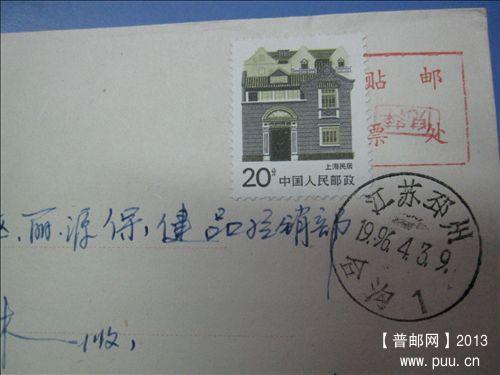 贴 邮
票 处
上海民居
20分 中国人民邮政
江苏邳州
1996.4.3.9.
1
丽源保健品经销部
收,
【普邮网】2013
www.puu.cn